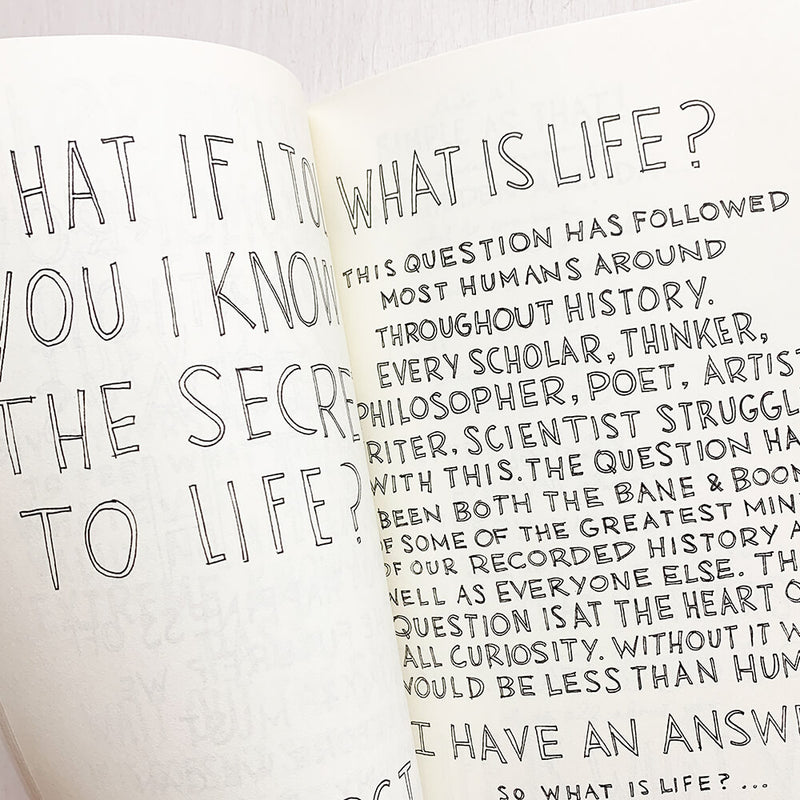 HAT IF I TO
YOU I KNOW
THE SECRE
TO LIFE?
WHAT IS LIFE?
THIS QUESTION HAS FOLLOWED
MOST HUMANS AROUND
THROUGHOUT HISTORY.
EVERY SCHOLAR, THINKER,
PHILOSOPHER, POET, ARTIST
RITER, SCIENTIST STRUGGL
WITH THIS. THE QUESTION HA
BEEN BOTH THE BANE & BOON
OF SOME OF THE GREATEST MIN
OF OUR RECORDED HISTORY A
WELL AS EVERYONE ELSE. TH
QUESTION IS AT THE HEART O
ALL CURIOSITY. WITHOUT IT W
WOULD BE LESS THAN HUM
I HAVE AN ANSWE
SO WHAT IS LIFE?...